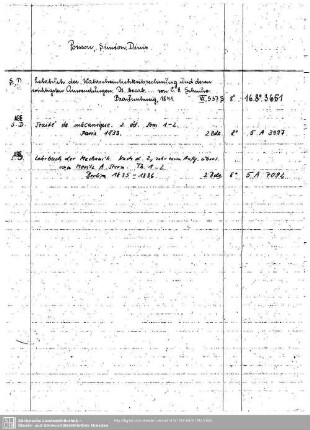 Poisson, Siméon Denis
S. D. Lehrbuch der Wahrscheinlichkeitsrechnung und deren
wichtigsten Anwendungen. Dt. bearb. ... von C. H. Schnuse
Braunschweig, 1841 VI, 537 S 8° 16.8°.3651
S. D. Traité de mécanique. 2. éd. Tom 1-2.
Paris 1833. 2 Bde. 8° 5 A 3977
Lehrbuch der Mechanik. Nach d. 2., sehr verm. Aufg. übers.
von Moritz A. Stern. Th. 1-2.
Berlin 1835-1836. 2 Bde. 8° 5 A 7094
Sächsische Landesbibliothek -
Staats- und Universitätsbibliothek Dresden